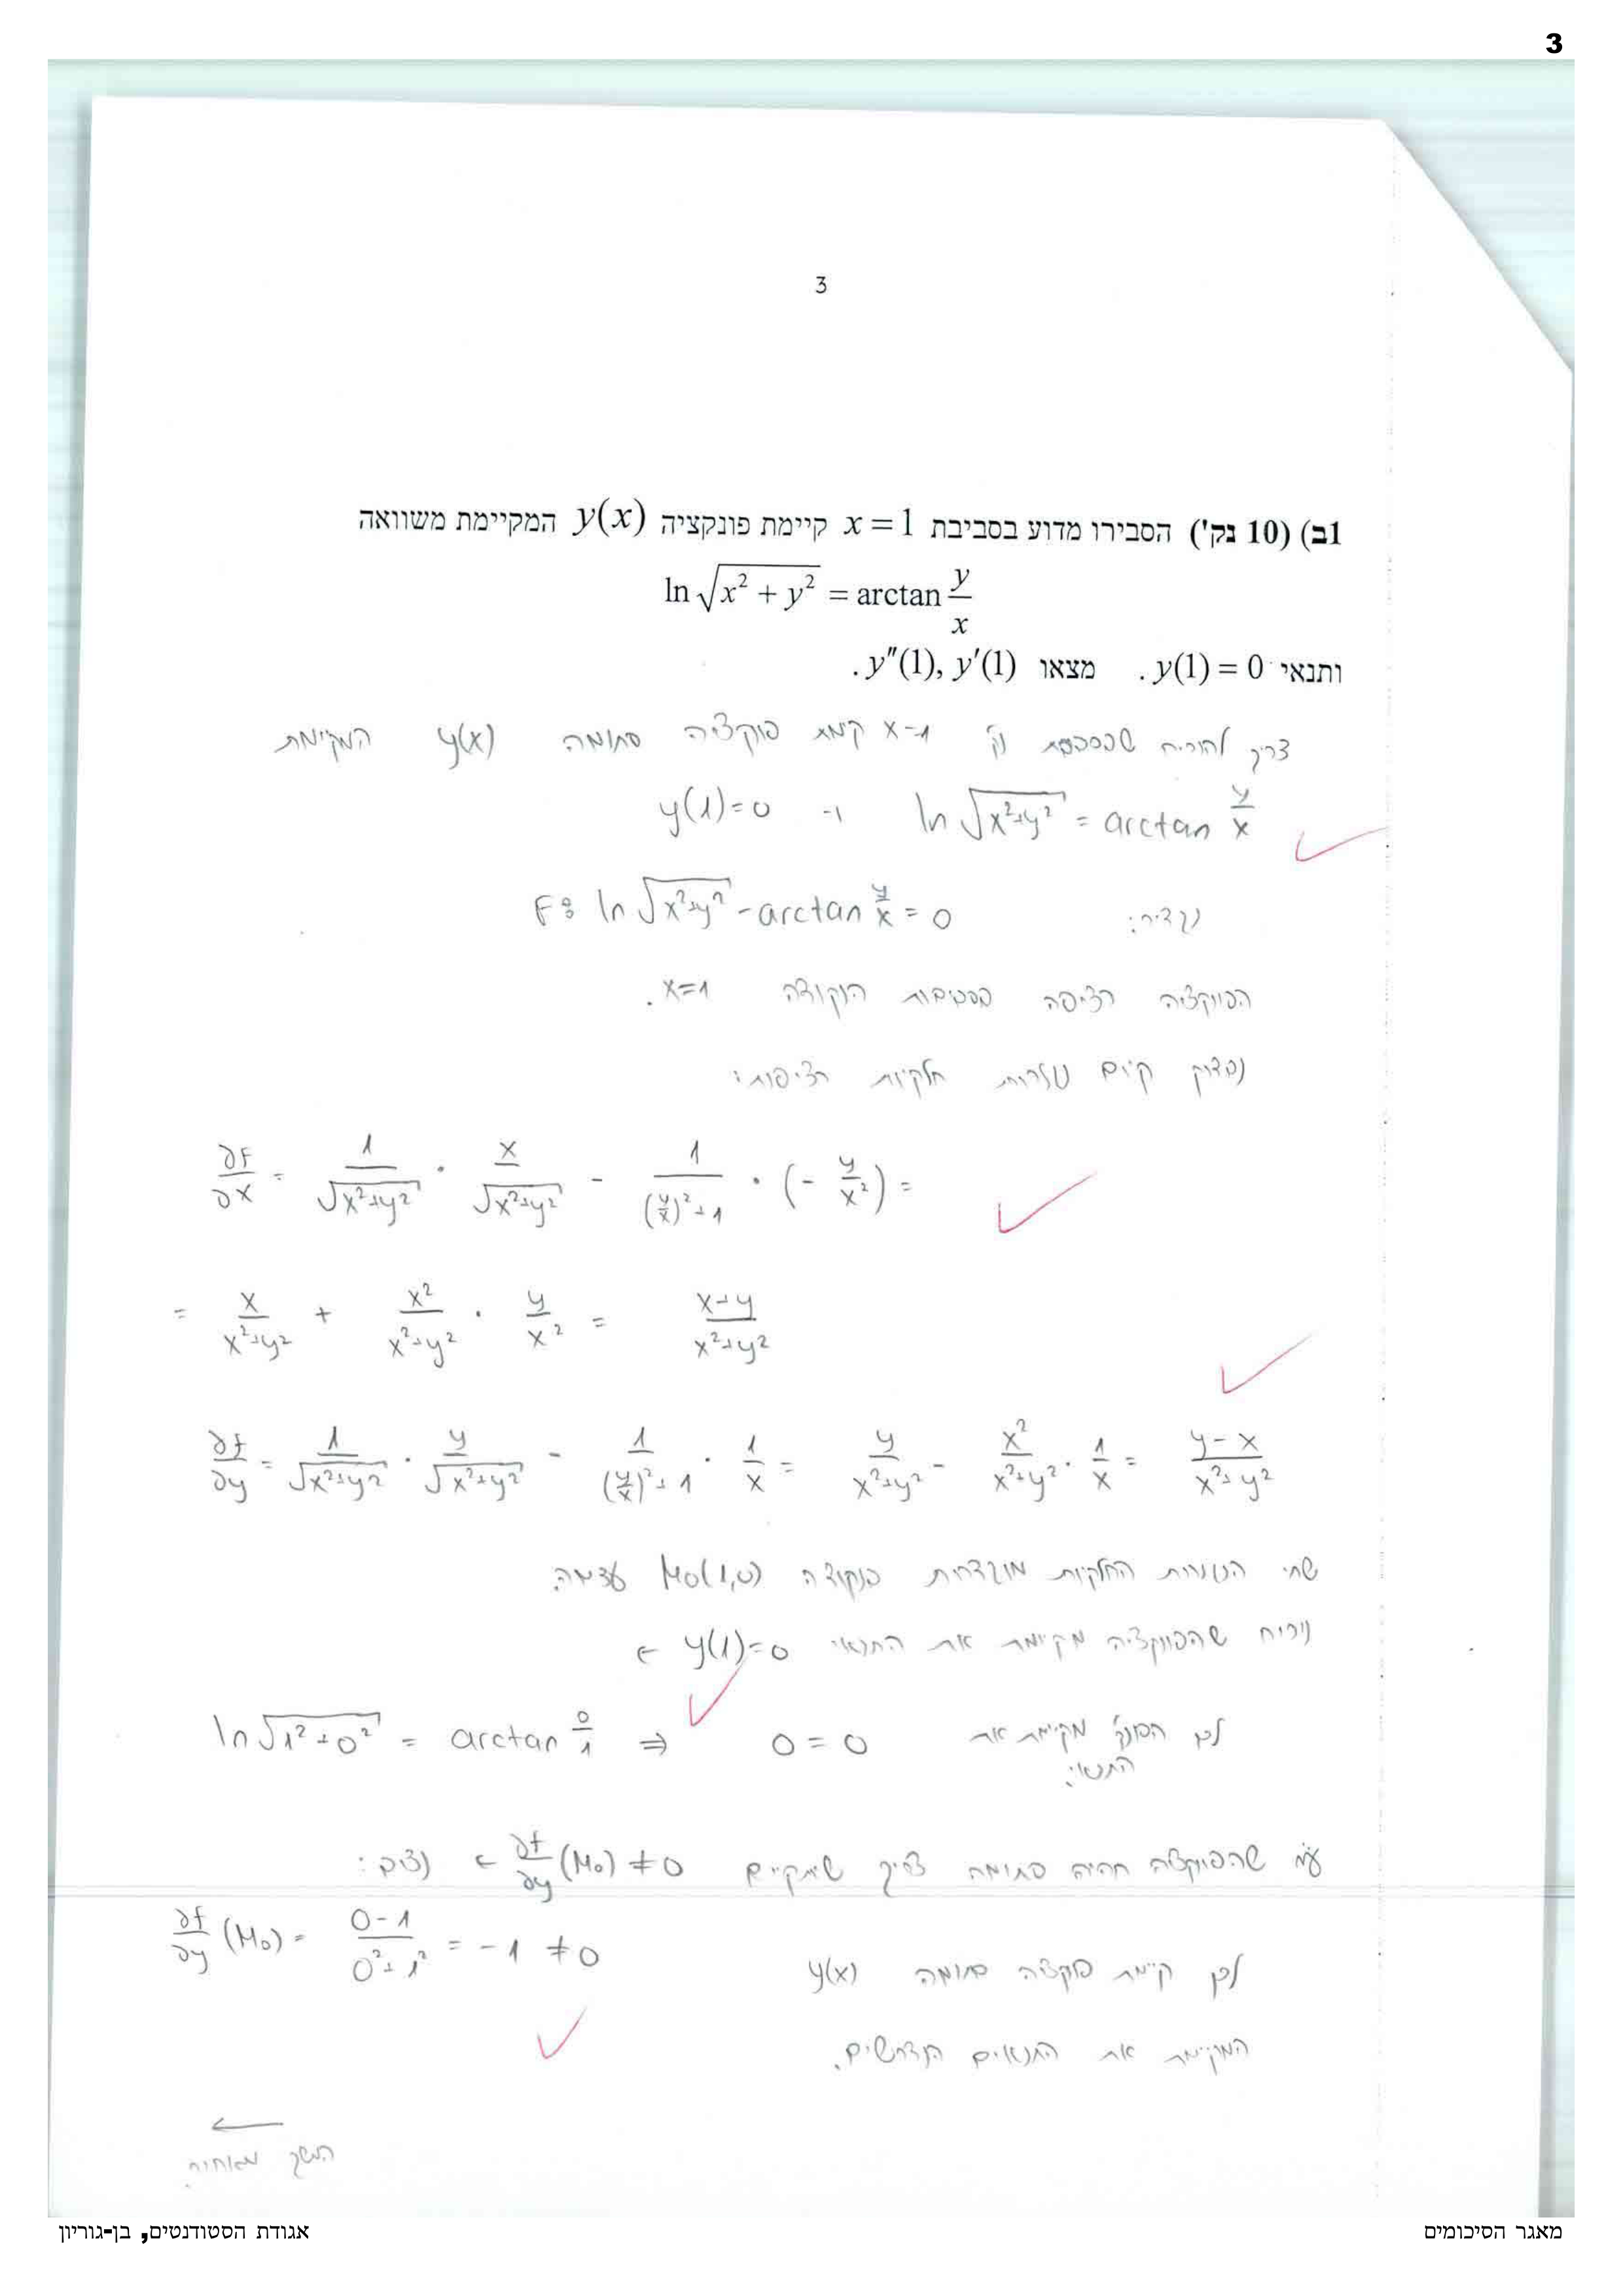 3
3
1ב) (10 נק') הסבירו מדוע בסביבת x = 1 קיימת פונקציה y(x) המקיימת משוואה
ln √(x² + y²) = arctan y/x
ותנאי y(1) = 0 . מצאו y''(1), y'(1) .
צריך להוכיח שבסביבת נק' x=1 קיימת פונקציה סתומה y(x) המקיימת
ln √(x²+y²) = arctan y/x ו- y(1)=0
נגדיר: F: ln √(x²+y²) - arctan y/x = 0
הפונקציה רציפה בסביבות הנקודה x=1.
נבדוק קיום נגזרות חלקיות רציפות:
∂F/∂x = 1/√(x²+y²) · x/√(x²+y²) - 1/((y/x)²+1) · (- y/x²) =
= x/(x²+y²) + x²/(x²+y²) · y/x² = (x+y)/(x²+y²)
∂f/∂y = 1/√(x²+y²) · y/√(x²+y²) - 1/((y/x)²+1) · 1/x = y/(x²+y²) - x²/(x²+y²) · 1/x = (y-x)/(x²+y²)
שתי הנגזרות החלקיות מוגדרות בנקודה M0(1,0) עצמה.
נוכיח שהפונקציה מקיימת את התנאי y(1)=0 ←
ln √(1²+0²) = arctan 0/1 ⇒ 0 = 0 לכן הפונק' מקיימת את
התנאי.
ע"מ שהפונקציה תהיה סתומה צריך שיתקיים ∂f/∂y (M0) ≠ 0 ← נציב:
∂f/∂y (M0) = (0-1)/(0²+1²) = -1 ≠ 0
לכן קיימת פונקציה סתומה y(x)
המקיימת את התנאים הנדרשים.
←
המשך מאחורה
מאגר הסיכומים
אגודת הסטודנטים, בן-גוריון